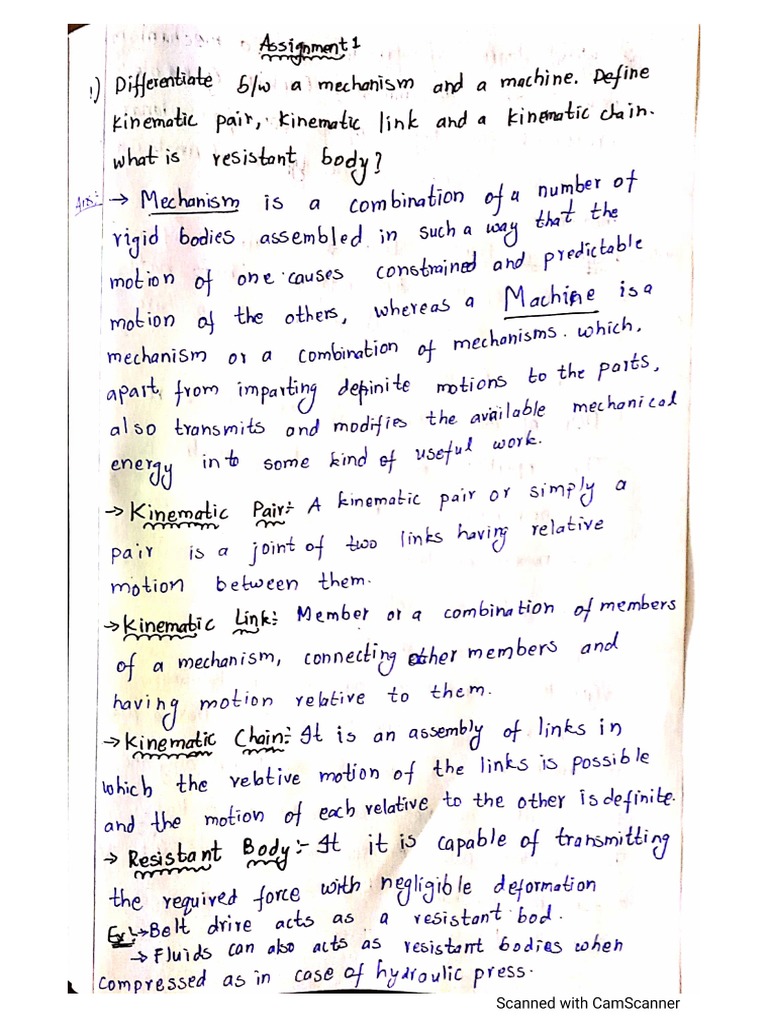 Assignment 1
1) Differentiate b/w a mechanism and a machine. Define
kinematic pair, kinematic link and a kinematic chain.
what is resistant body?
Ans:- → Mechanism is a combination of a number of
rigid bodies assembled in such a way that the
motion of one causes constrained and predictable
motion of the others, whereas a Machine is a
mechanism or a combination of mechanisms. which,
apart from imparting definite motions to the parts,
also transmits and modifies the available mechanical
energy into some kind of useful work.
→ Kinematic Pair:- A kinematic pair or simply a
pair is a joint of two links having relative
motion between them.
→ Kinematic Link:- Member or a combination of members
of a mechanism, connecting other members and
having motion relative to them.
→ Kinematic Chain:- It is an assembly of links in
which the relative motion of the links is possible
and the motion of each relative to the other is definite.
→ Resistant Body:- It it is capable of transmitting
the required force with negligible deformation
Ex:- → Belt drive acts as a resistant bod.
→ Fluids can also acts as resistant bodies when
compressed as in case of hydroulic press.
Scanned with CamScanner